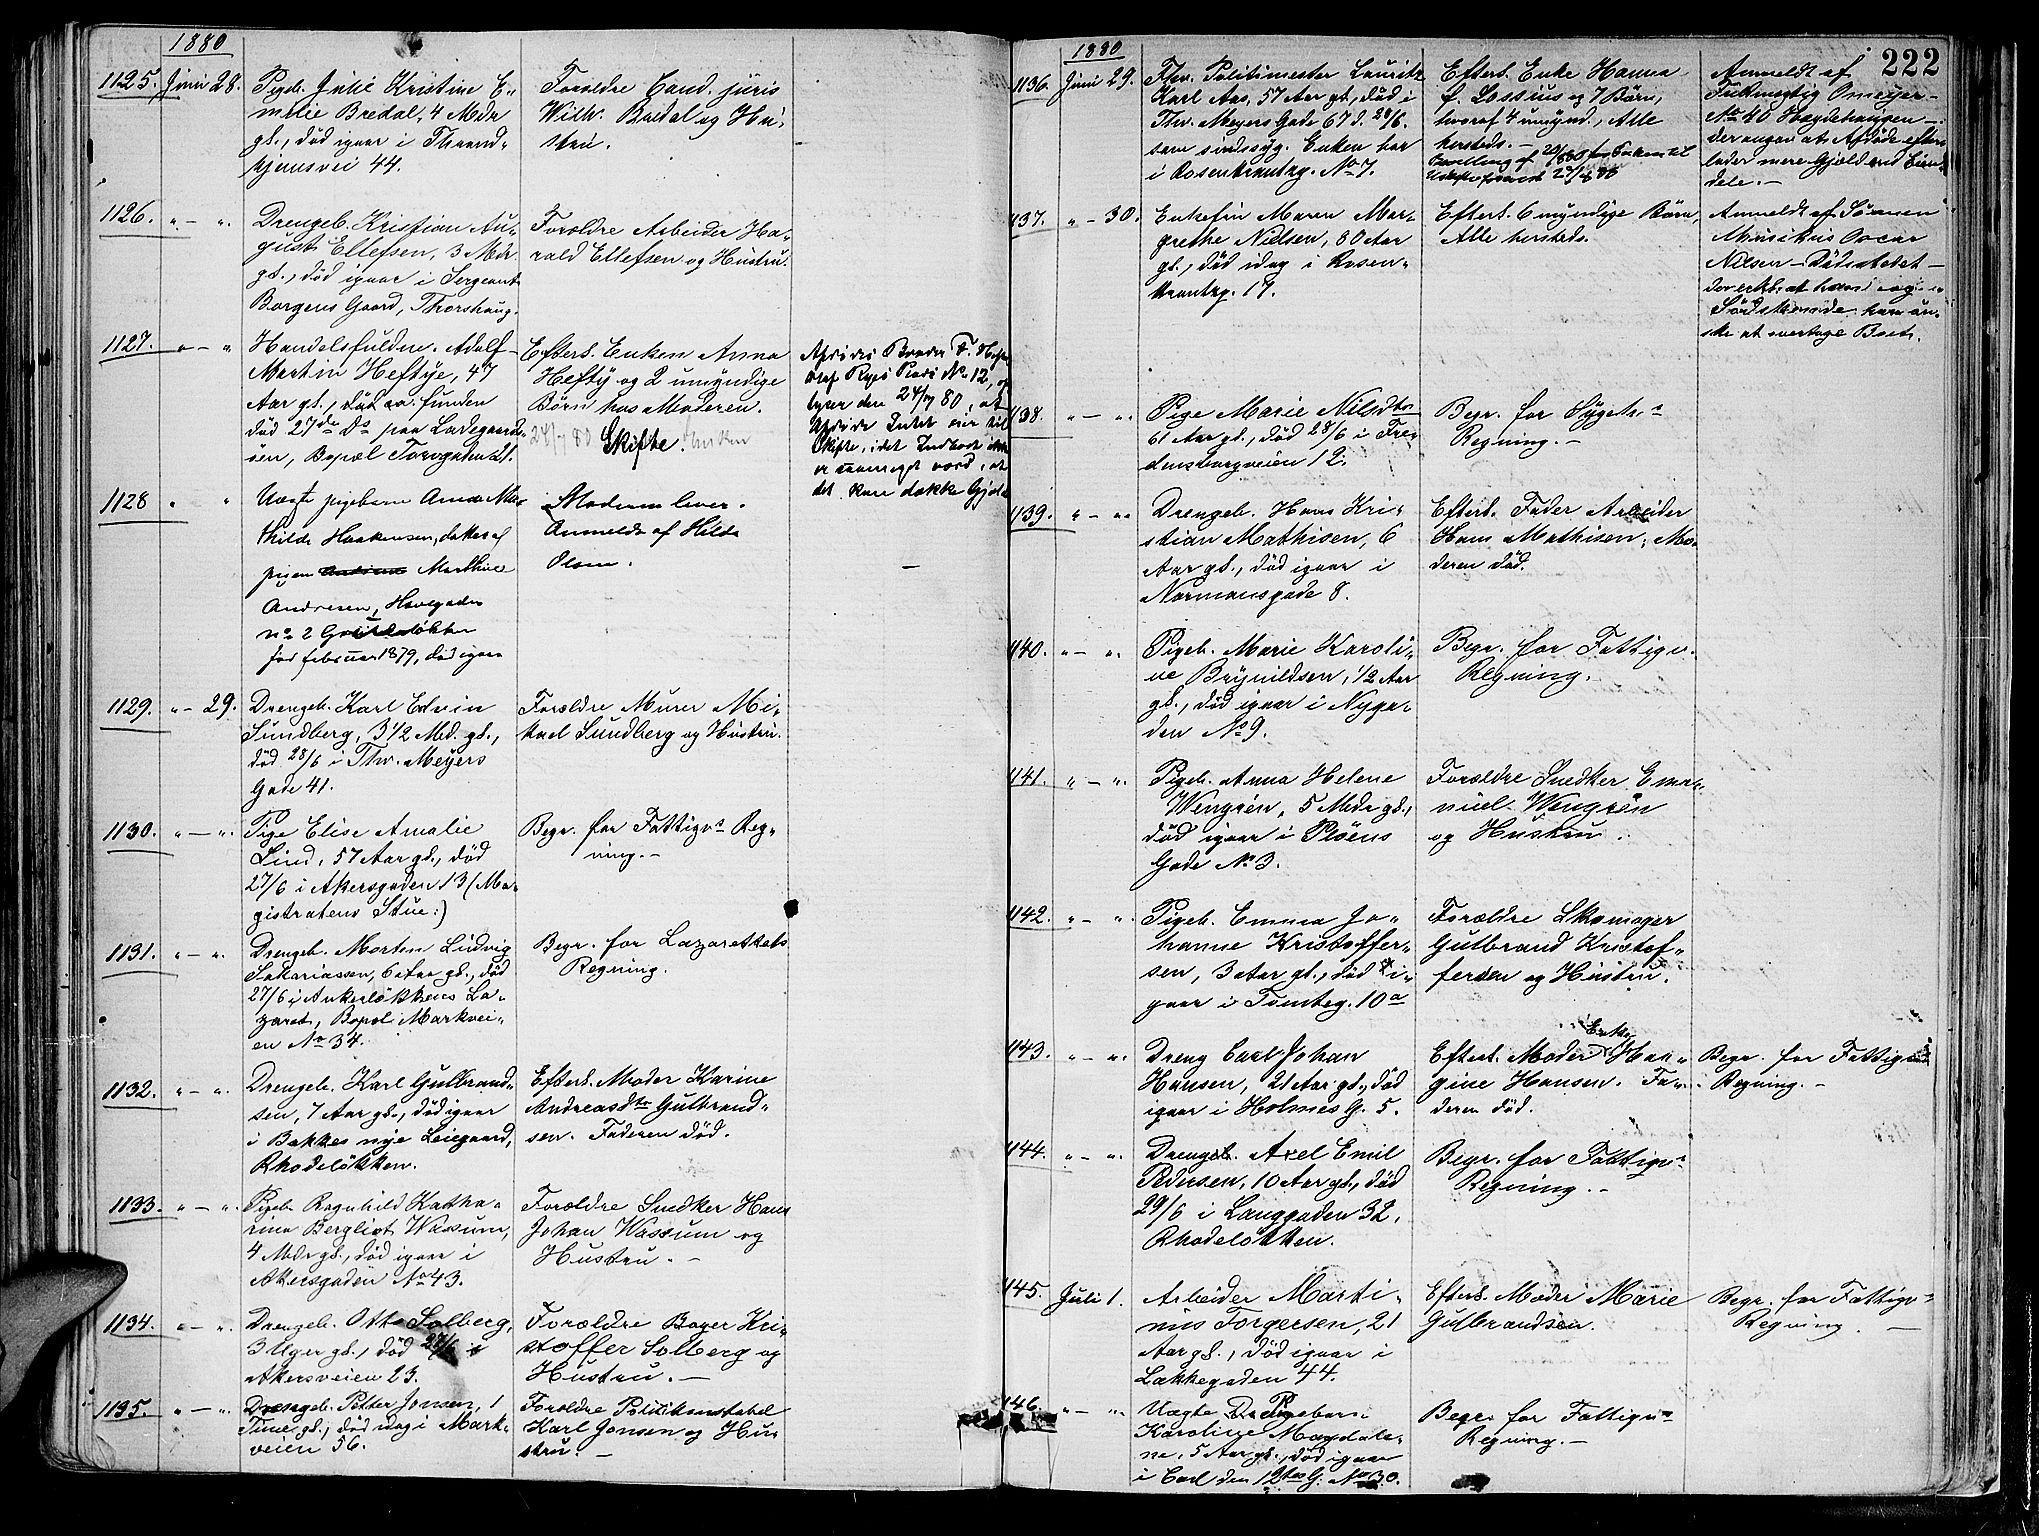 1880
1125. Juni 28. Pigeb. Julie Kristine E-
melie Bredal, 4 Mdr
gl., död igaar i Thrond-
hjemsvei 44.
Forældre Cand. juris
Wilh. Bredal og Hu-
stru.
1126. " - " Drengeb. Kristian Au-
gust Ellefsen, 3 Mdr.
gl., död igaar i Sergeant
Borgens Gaard, Thorshaug.
Forældre Arbeider Ha-
rald Ellefsen og Hustru.
1127. " - " Handelsfuldm. Adolf
Martin Heftye, 47
Aar gl., funden
död 27de ds paa Ladegaards-
öen, Bopæl Torvgaden 21.
Efterl. Enken Anna
Hefty og 2 umyndige
Börn hos Moderen.
24/7 80 Skifte.
Afdödes Broder T. Hefty
Olaf Ryes Plads No 12, op-
lyser den 24/7 80, at
Afdöde Intet eier til
Skifte, idet Indboet ikke
er saameget værd, at
det kan dække Gjæld
1128 " " Uægte pigebarn Anna Mat-
hilde Haakensen, datter af
pigen Marthine
Andresen, Havegaden
no 2
för februar 1879, död igaar
Moderen lever.
Anmeldt af Hilda
Olsen.
1129. " - 29. Drengeb. Karl Edvin
Sundberg, 3 1/2 Md. gl.,
död 28/6 i Thv. Meyers
Gade 41.
Forældre Murer Mi-
kael Sundberg og Hustru.
1130. " - " Pige Elise Amalie
Lind, 57 Aar gl., död
27/6 i Akersgaden 13 (Ma-
gistratens Stue:)
Begr. for Fattigv.s Reg-
ning. -
1131. " - " Drengeb. Morten Ludvig
Sakariassen, 6 Aar gl., död
27/6 i Ankerløkkens La-
zaret, Bopæl Markvei-
en No 34.
Begr. for Lazarettets
Regning.
1132. " - " Drengeb. Karl Gulbrand-
sen, 7 Aar gl., död igaar
i Bakkes nye Leiegaard,
Rhodeløkken.
Efterl. Moder Karine
Andreasdtr Gulbrand-
sen. Faderen död.
1133. " - " Pigeb. Ragnhild Katha-
rina Bergliot Wassum,
4 Mdr gl., död igaar i
Akersgaden No 43.
Forældre Snedker Hans
Johan Wassum og
Hustru. -
1134. " - " Drengeb. Otto Solberg,
3 Uger gl., död 27/6 i
Akersveien 23.
Forældre Bager Kri-
stoffer Solberg og
Hustru. -
1135. " - " Drengeb. Petter Jonsen, 1
Time gl., död idag i Mark-
veien 56.
Forældre Politikonstabel
Karl Jonsen og Hu-
stru. -
1880
222
1136. Juni 29. Fhv. Politimester Lauritz
Karl Aas, 57 Aar gl., död i
Thv. Meyers Gade 67 d. 28/6.
som sindssyg. Enken bor
i Rosenkrantzg. No 7.
Efterl. Enke Hanna
f. Lossius og 7 Börn,
hvoraf 4 umynd., Alle
hersteds. -
Anmeldt af
Fuldmægtig Omeyer -
No 40 Hægdehaugen -
der angav at Afdöde efter-
lader mere Gjæld end Eien-
dele. -
1137. " - 30. Enkefru Maren Mar-
grethe Nielsen, 80 Aar
gl., död idag i Rosen-
krantzg. 17.
Efterl. 6 myndige Börn,
Alle hersteds.
Anmeldt af Sönnen
Musikus Oscar
Nilsen - Dödsstedet -
der erkl. at han og
Södskende kun øn-
ske at overtage Boet.
1138. " - " Pige Marie Nilsdtr
61 Aar gl., död 28/6 i Fre-
densborgveien 12.
Begr. for Sygeh.s
Regning. -
1139. " - " Drengeb. Hans Kri-
stian Mathisen, 6
Aar gl., död igaar i
Normansgade 8.
Efterl. Fader Arbeider
Hans Mathisen, Mo-
deren död.
1140. " - " Pigeb. Marie Karoli-
ne Brynildsen, 1/2 Aar
gl., död igaar i Nyga-
den No 9.
Begr. for Fattigv.
Regning.
1141. " - " Pigeb. Anna Helene
Wengrén, 5 Mdr gl.,
död igaar i Pløens
Gade No 3.
Forældre Snedker Ema-
nuel Wengrén
og Hustru.
1142. " - " Pigeb. Emma Jo-
hanne Kristoffer-
sen, 3 Aar gl., död i-
gaar i Tomteg. 10 a
Forældre Skomager
Gulbrand Kristof-
fersen og Hustru.
1143. " - " Dreng Carl Johan
Hansen, 21 Aar gl., död
igaar i Holmes G. 5.
Efterl. Moder Enke Han-
gine Hansen. Fa-
deren död.
Begr. for Fattigv.s
Regning. -
1144. " - " Drengeb. Axel Emil
Pedersen, 10 Aar gl., död
29/6 i Langgaden 32,
Rhodeløkken.
Begr. for Fattigv.s
Regning. -
1145. Juli 1. Arbeider Marti-
nus Torgersen, 21
Aar gl., död igaar i
Lakkegaden 44.
Efterl. Moder Marie
Gulbrandsen.
Begr. for Fattigv.s
Regning. -
1146. " - " Uægte Pigebarn
Karoline Magdale-
ne, 5 Aar gl., död igaar
i Carl den 12tes G. No 30.
Begr. for Fattigv.s
Regning. -